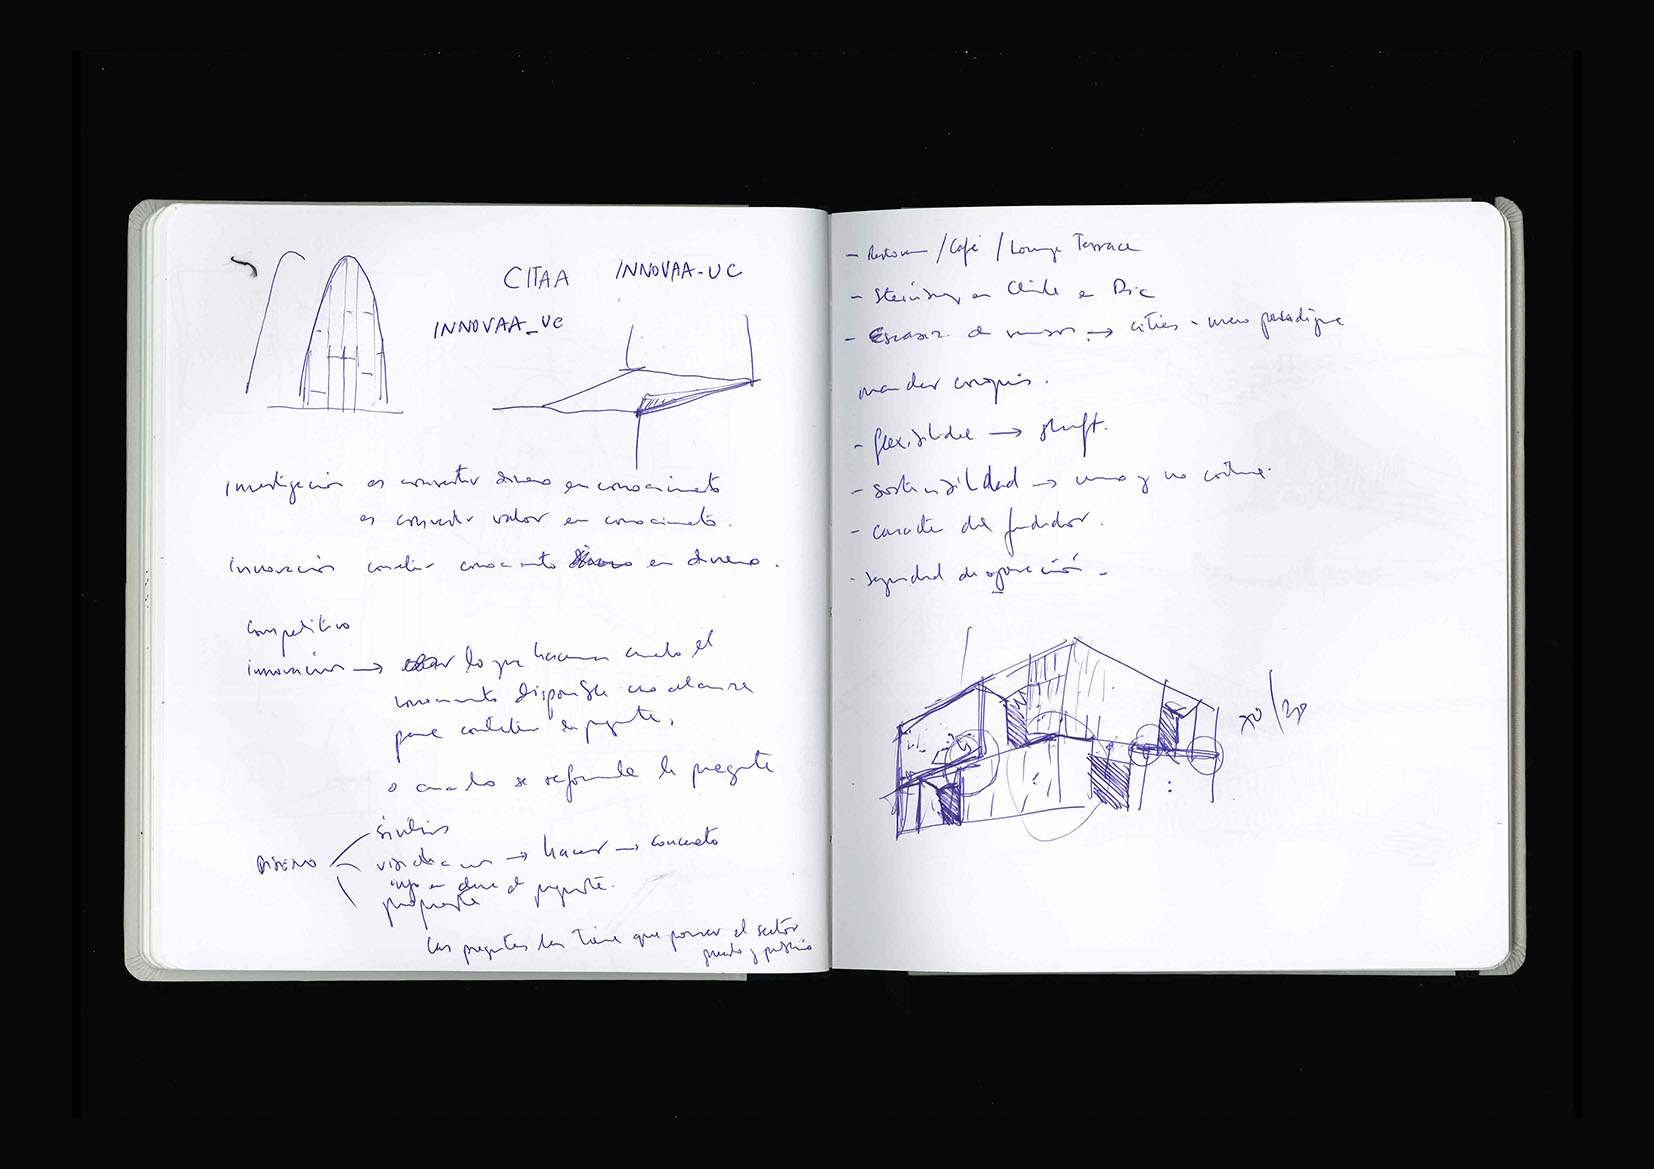 CITAA INNOVAA-UC
INNOVAA_UC
Investigación es convertir dinero en conocimiento
es convertir valor en conocimiento.
Innovación convertir conocimiento en dinero.
Competitivo
innovación → lo que hacemos cuando el
conocimiento disponible no alcanza
para contestar la pregunta,
o cuando se reformula la pregunta
síntesis
DISEÑO → hacer → concreto
en clave de propuesta.
propuesta
Las preguntas las tiene que poner el sector
privado y público
- Restoran / Café / Lounge Terrace
- en Chile en Dic
- Escasez de → cities - nuevo paradigma
mandar croquis.
- flexibilidad →
- sostenibilidad → uno y no
- carácter del fundador.
- seguridad de operación.